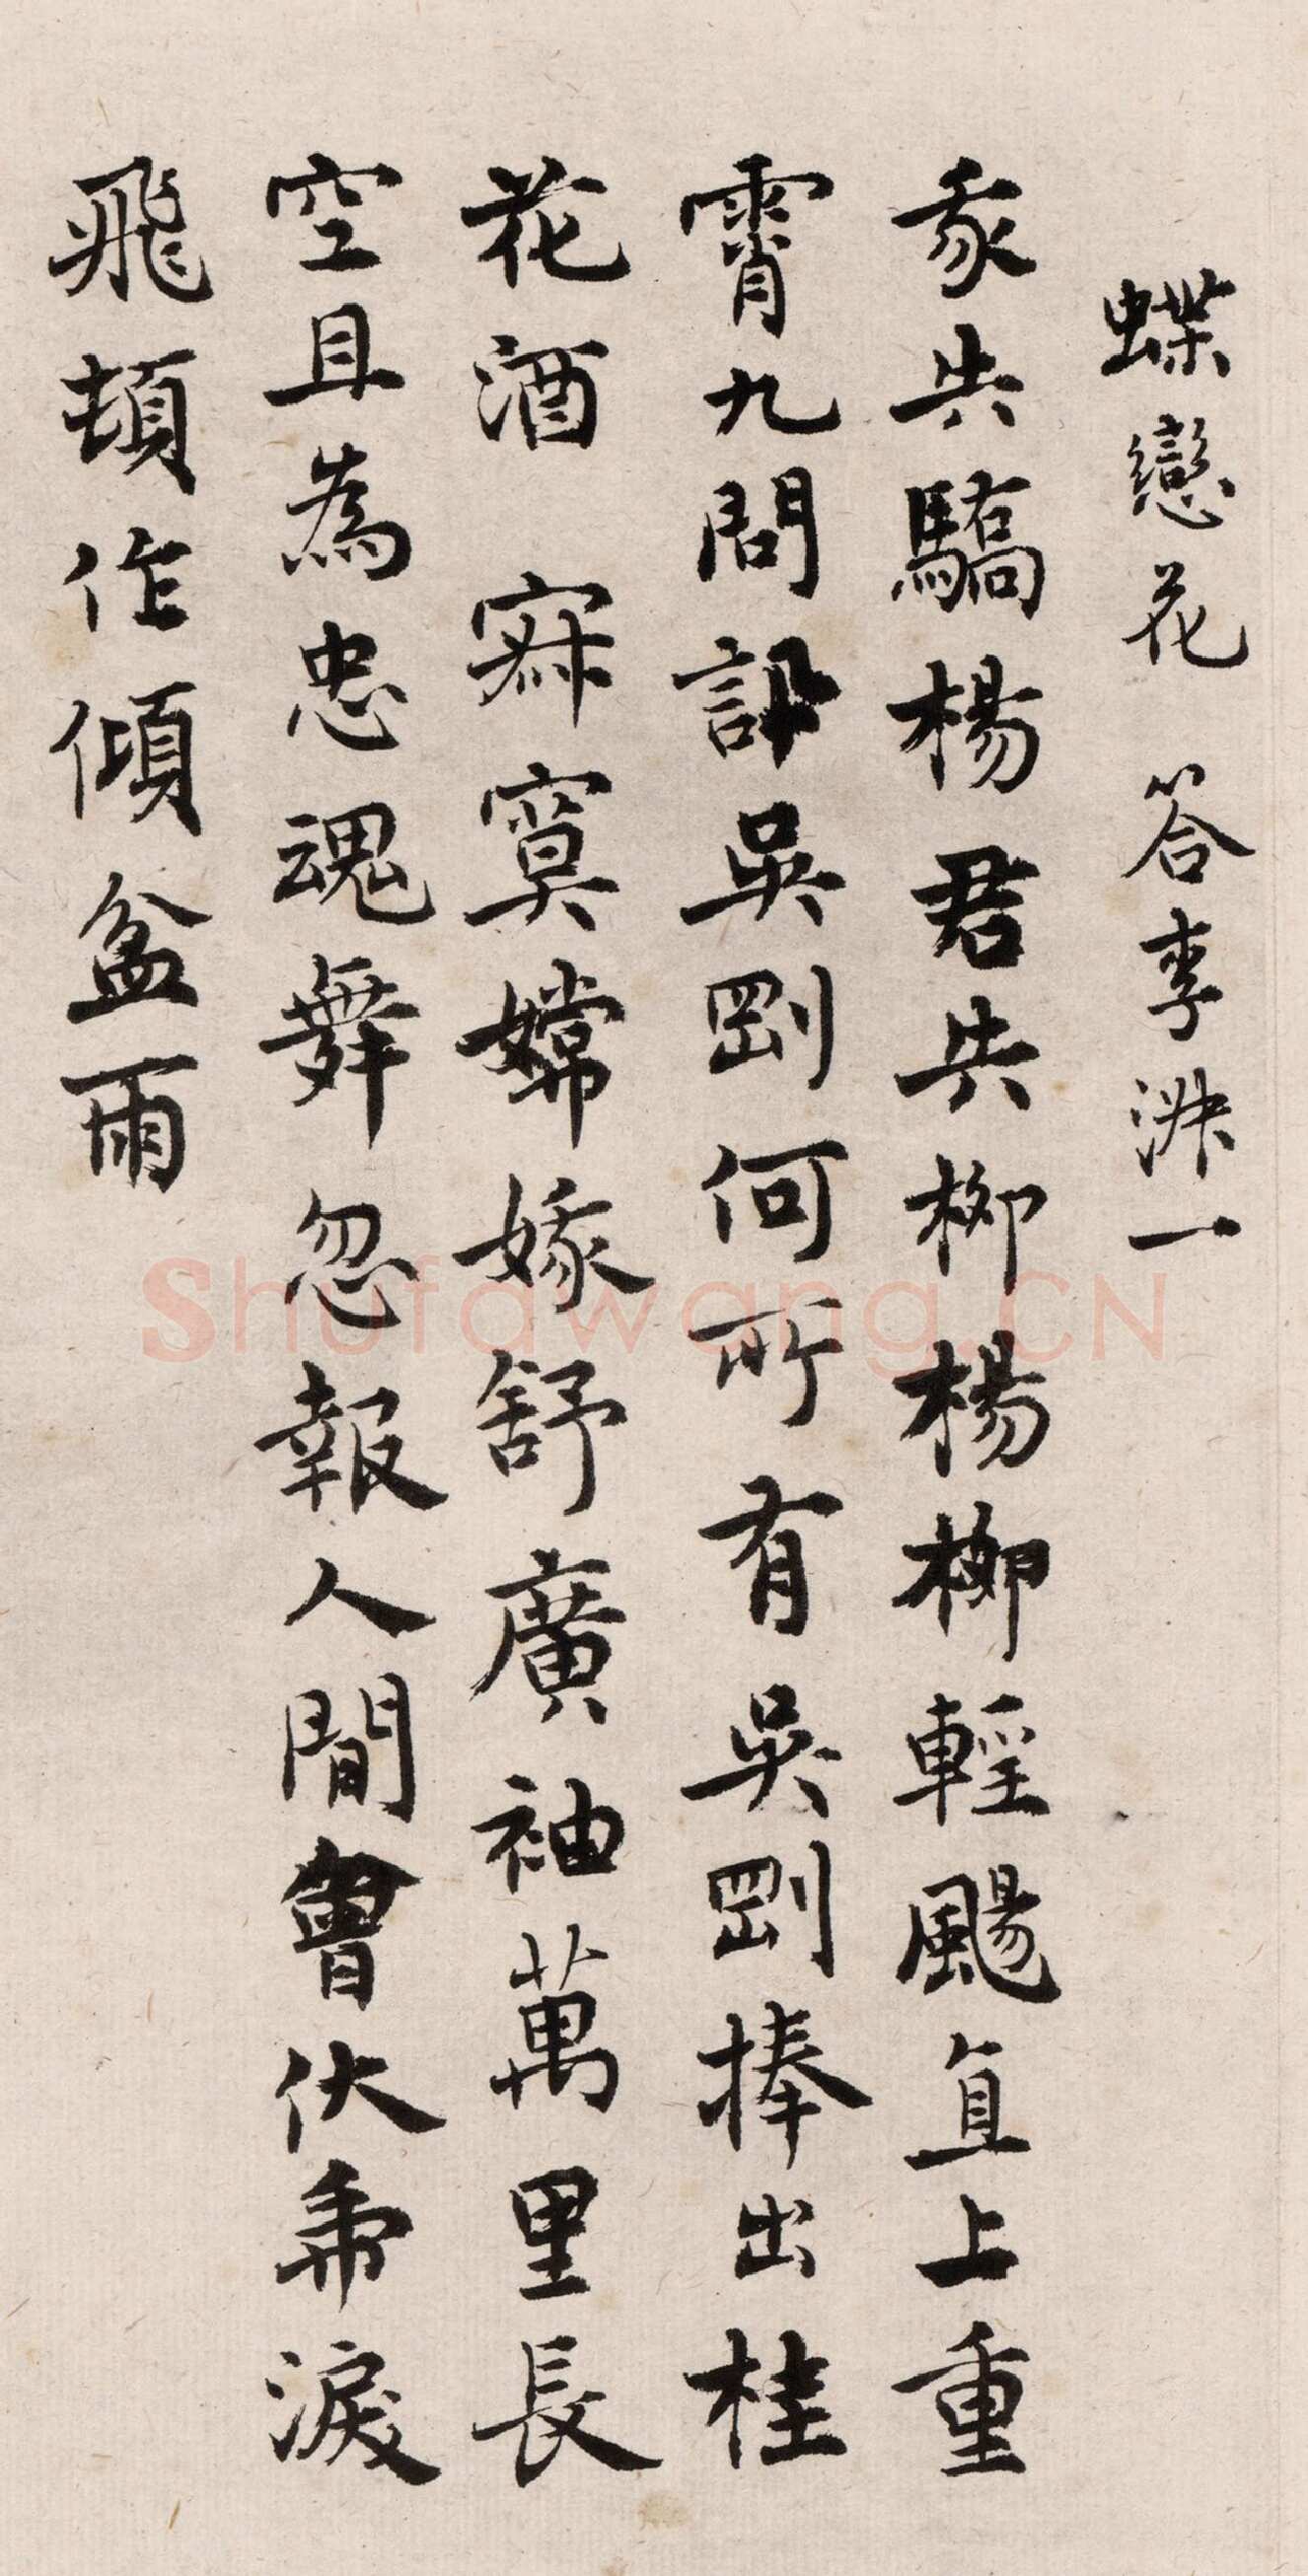 蝶戀花 答李淑一
我失驕楊君失柳楊柳輕颺直上重
霄九問訊吳剛何所有吳剛捧出桂
花酒 寂寞嫦娥舒廣袖萬里長
空且為忠魂舞忽報人間曾伏虎淚
飛頓作傾盆雨
Shufawang.CN